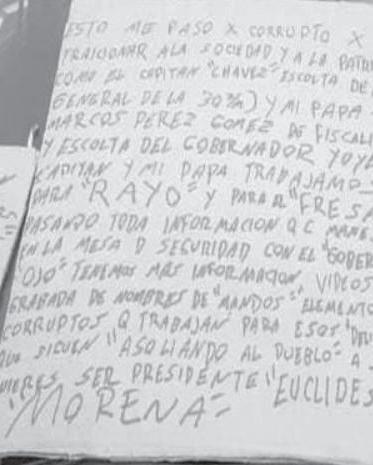 ESTO ME PASO X CORRUPTO X
TRAICIONAR ALA SOCIEDAD Y A LA PATRI
COMO EL CAPITAN "CHAVEZ" ESCOLTA DEL
GENERAL DE LA 30ZM) Y MI PAPA
MARCOS PEREZ GOMEZ DE FISCALI
Y ESCOLTA DEL GOBERNADOR YOYE
CAPITAN Y MI PAPA TRABAJAMO
PARA "RAYO" Y PARA "FRESA
PASANDO TODA INFORMACION Q C MANE
EN LA MESA D SEGURIDAD CON EL "GOBER
"OJO" TENEMOS MAS INFORMACION VIDEOS
GRABADA DE NOMBRES DE "MANDOS" ELEMENTO
CORRUPTOS Q TRABAJAN PARA ESOS "DEL
QUE SIGUEN "ASOLIANDO AL PUEBLO" A
UIERES SER PRESIDENTE "EUCLIDES
"MORENA"